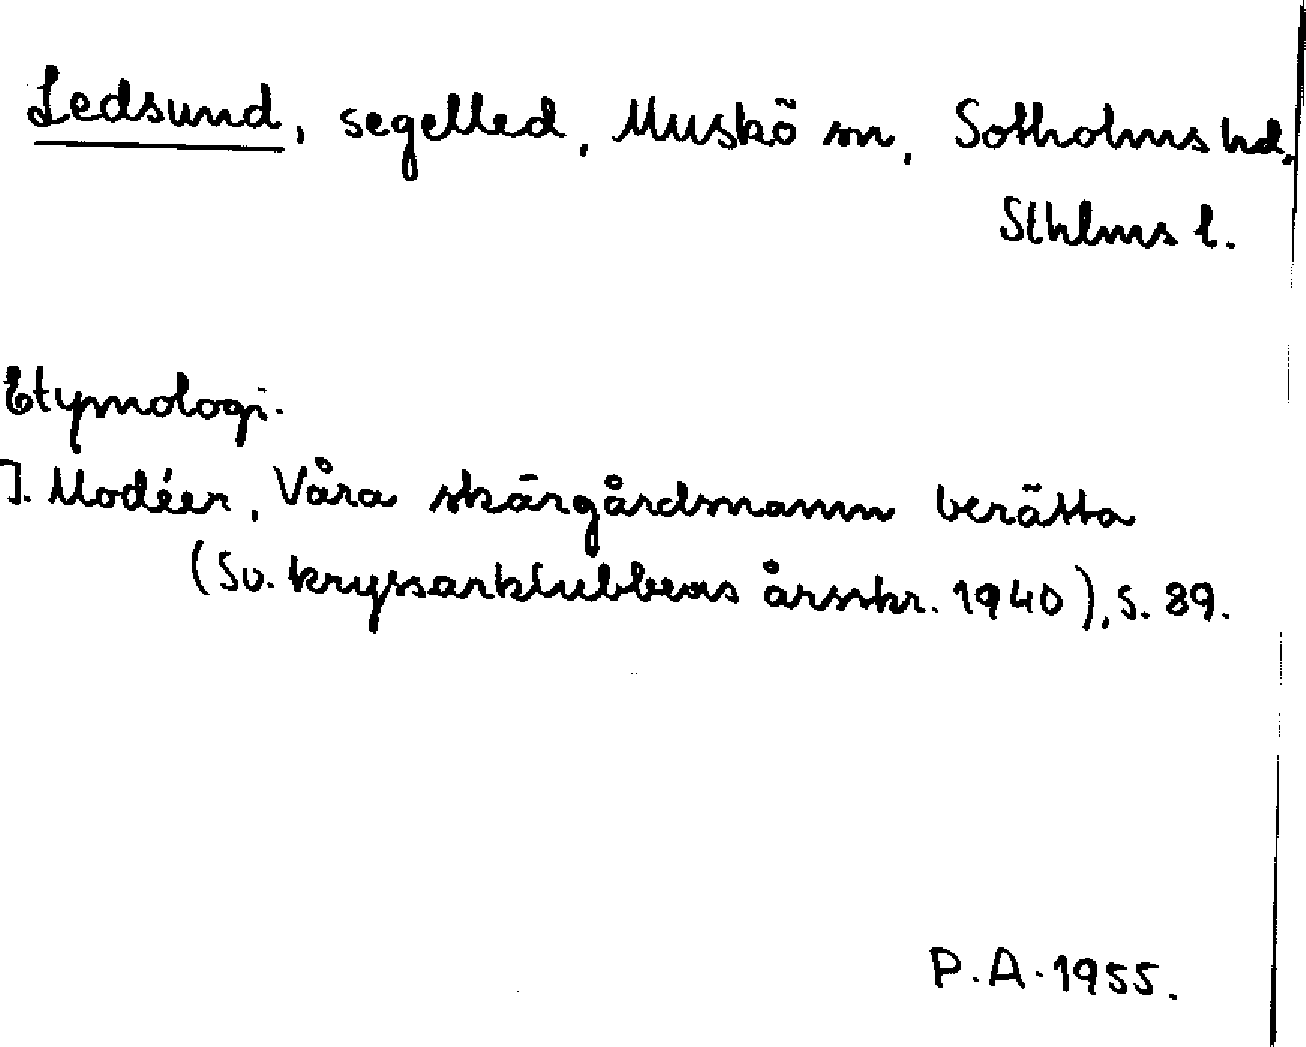 Ledsund, segelled, Muskö sn, Sotholms hd,
Sthlms l.
Etymologi.
I. Modéer, Våra skärgårdsnamn berätta
(Sv. kryssarklubbens årsskr. 1940), s. 89.
P.A. 1955.